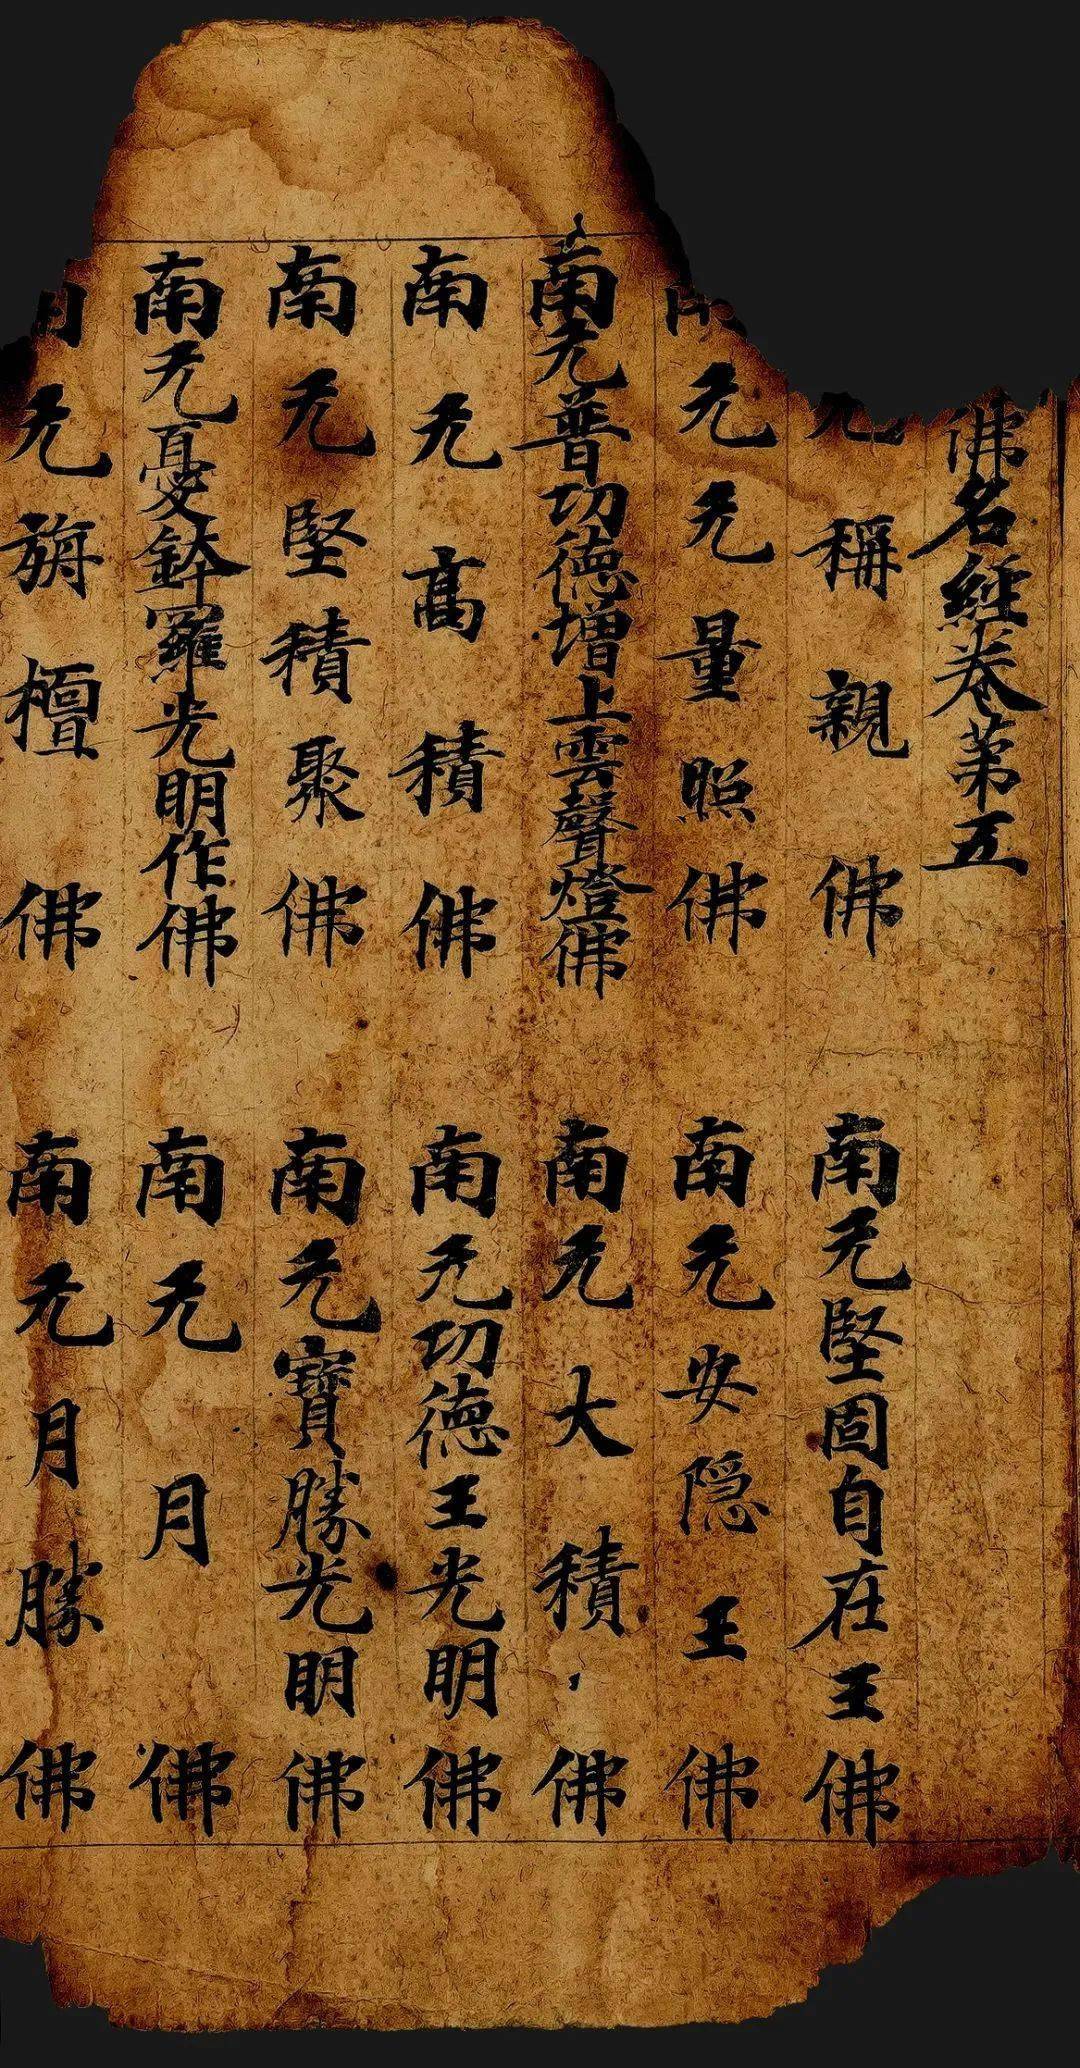 佛名經卷第五
无稱親佛 南无堅固自在王佛
南无无量照佛 南无安隐王佛
南无普功德增上雲聲燈佛 南无大積佛
南无高積佛 南无功德王光明佛
南无堅積聚佛 南无寶勝光明佛
南无憂鉢羅光明作佛 南无月佛
南无旃檀佛 南无月勝佛